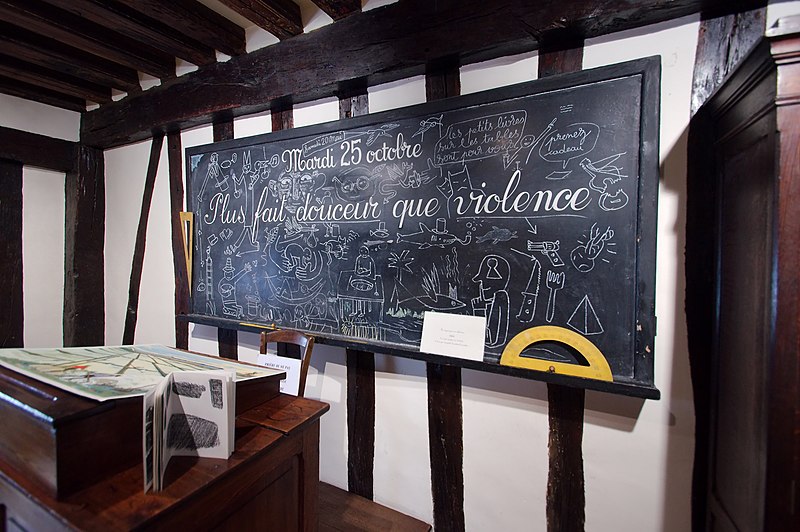 Samedi 20 mai
Mardi 25 octobre
Plus fait douceur que violence
les petits livres
sur les tables
sont pour vous
prenez
cadeau